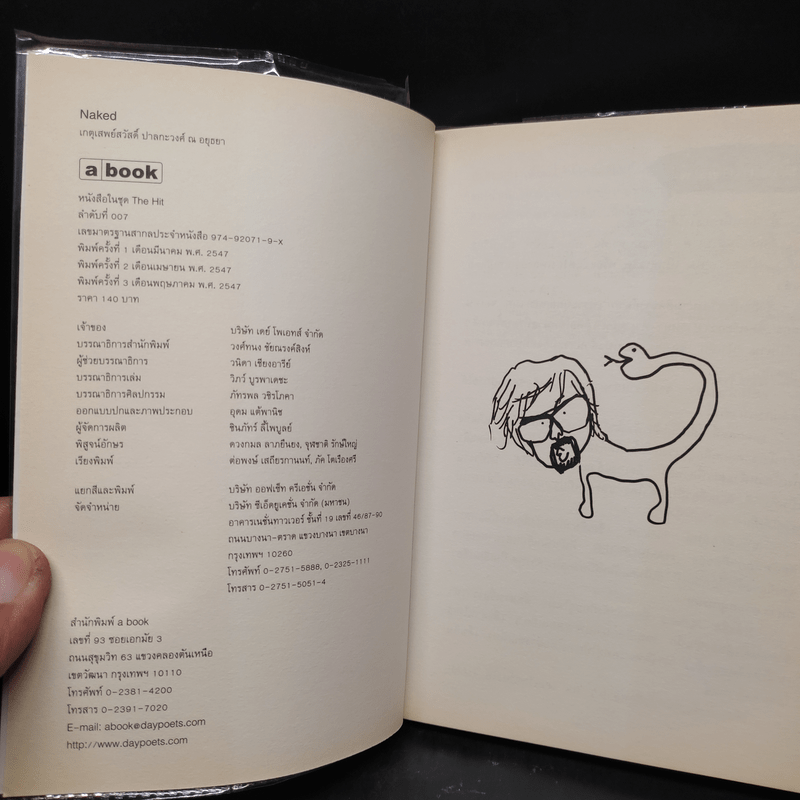 Naked
เกตุเสพย์สวัสดิ์ ปาลกะวงศ์ ณ อยุธยา
a book
หนังสือในชุด The Hit
ลำดับที่ 007
เลขมาตรฐานสากลประจำหนังสือ 974-92071-9-X
พิมพ์ครั้งที่ 1 เดือนมีนาคม พ.ศ. 2547
พิมพ์ครั้งที่ 2 เดือนเมษายน พ.ศ. 2547
พิมพ์ครั้งที่ 3 เดือนพฤษภาคม พ.ศ. 2547
ราคา 140 บาท
เจ้าของ บริษัท เดย์ โพเอทส์ จำกัด
บรรณาธิการสำนักพิมพ์ วงศ์ทนง ชัยณรงค์สิงห์
ผู้ช่วยบรรณาธิการ วนิดา เชียงอารีย์
บรรณาธิการเล่ม วิภว์ บูรพาเดชะ
บรรณาธิการศิลปกรรม ภัทรพล วชิรโภคา
ออกแบบปกและภาพประกอบ อุดม แต้พานิช
ผู้จัดการผลิต ชินภัทร์ ลี้ไพบูลย์
พิสูจน์อักษร ดวงกมล ลาภยืนยง, จุฬชาติ รักษ์ใหญ่
เรียงพิมพ์ ต่อพงษ์ เสถียรกานนท์, ภัค โตเรืองศรี
แยกสีและพิมพ์ บริษัท ออฟเซ็ท ครีเอชั่น จำกัด
จัดจำหน่าย บริษัท ซีเอ็ดยูเคชั่น จำกัด (มหาชน)
อาคารเนชั่นทาวเวอร์ ชั้นที่ 19 เลขที่ 46/87-90
ถนนบางนา-ตราด แขวงบางนา เขตบางนา
กรุงเทพฯ 10260
โทรศัพท์ 0-2751-5888, 0-2325-1111
โทรสาร 0-2751-5051-4
สำนักพิมพ์ a book
เลขที่ 93 ซอยเอกมัย 3
ถนนสุขุมวิท 63 แขวงคลองตันเหนือ
เขตวัฒนา กรุงเทพฯ 10110
โทรศัพท์ 0-2381-4200
โทรสาร 0-2391-7020
E-mail: abook@daypoets.com
http://www.daypoets.com